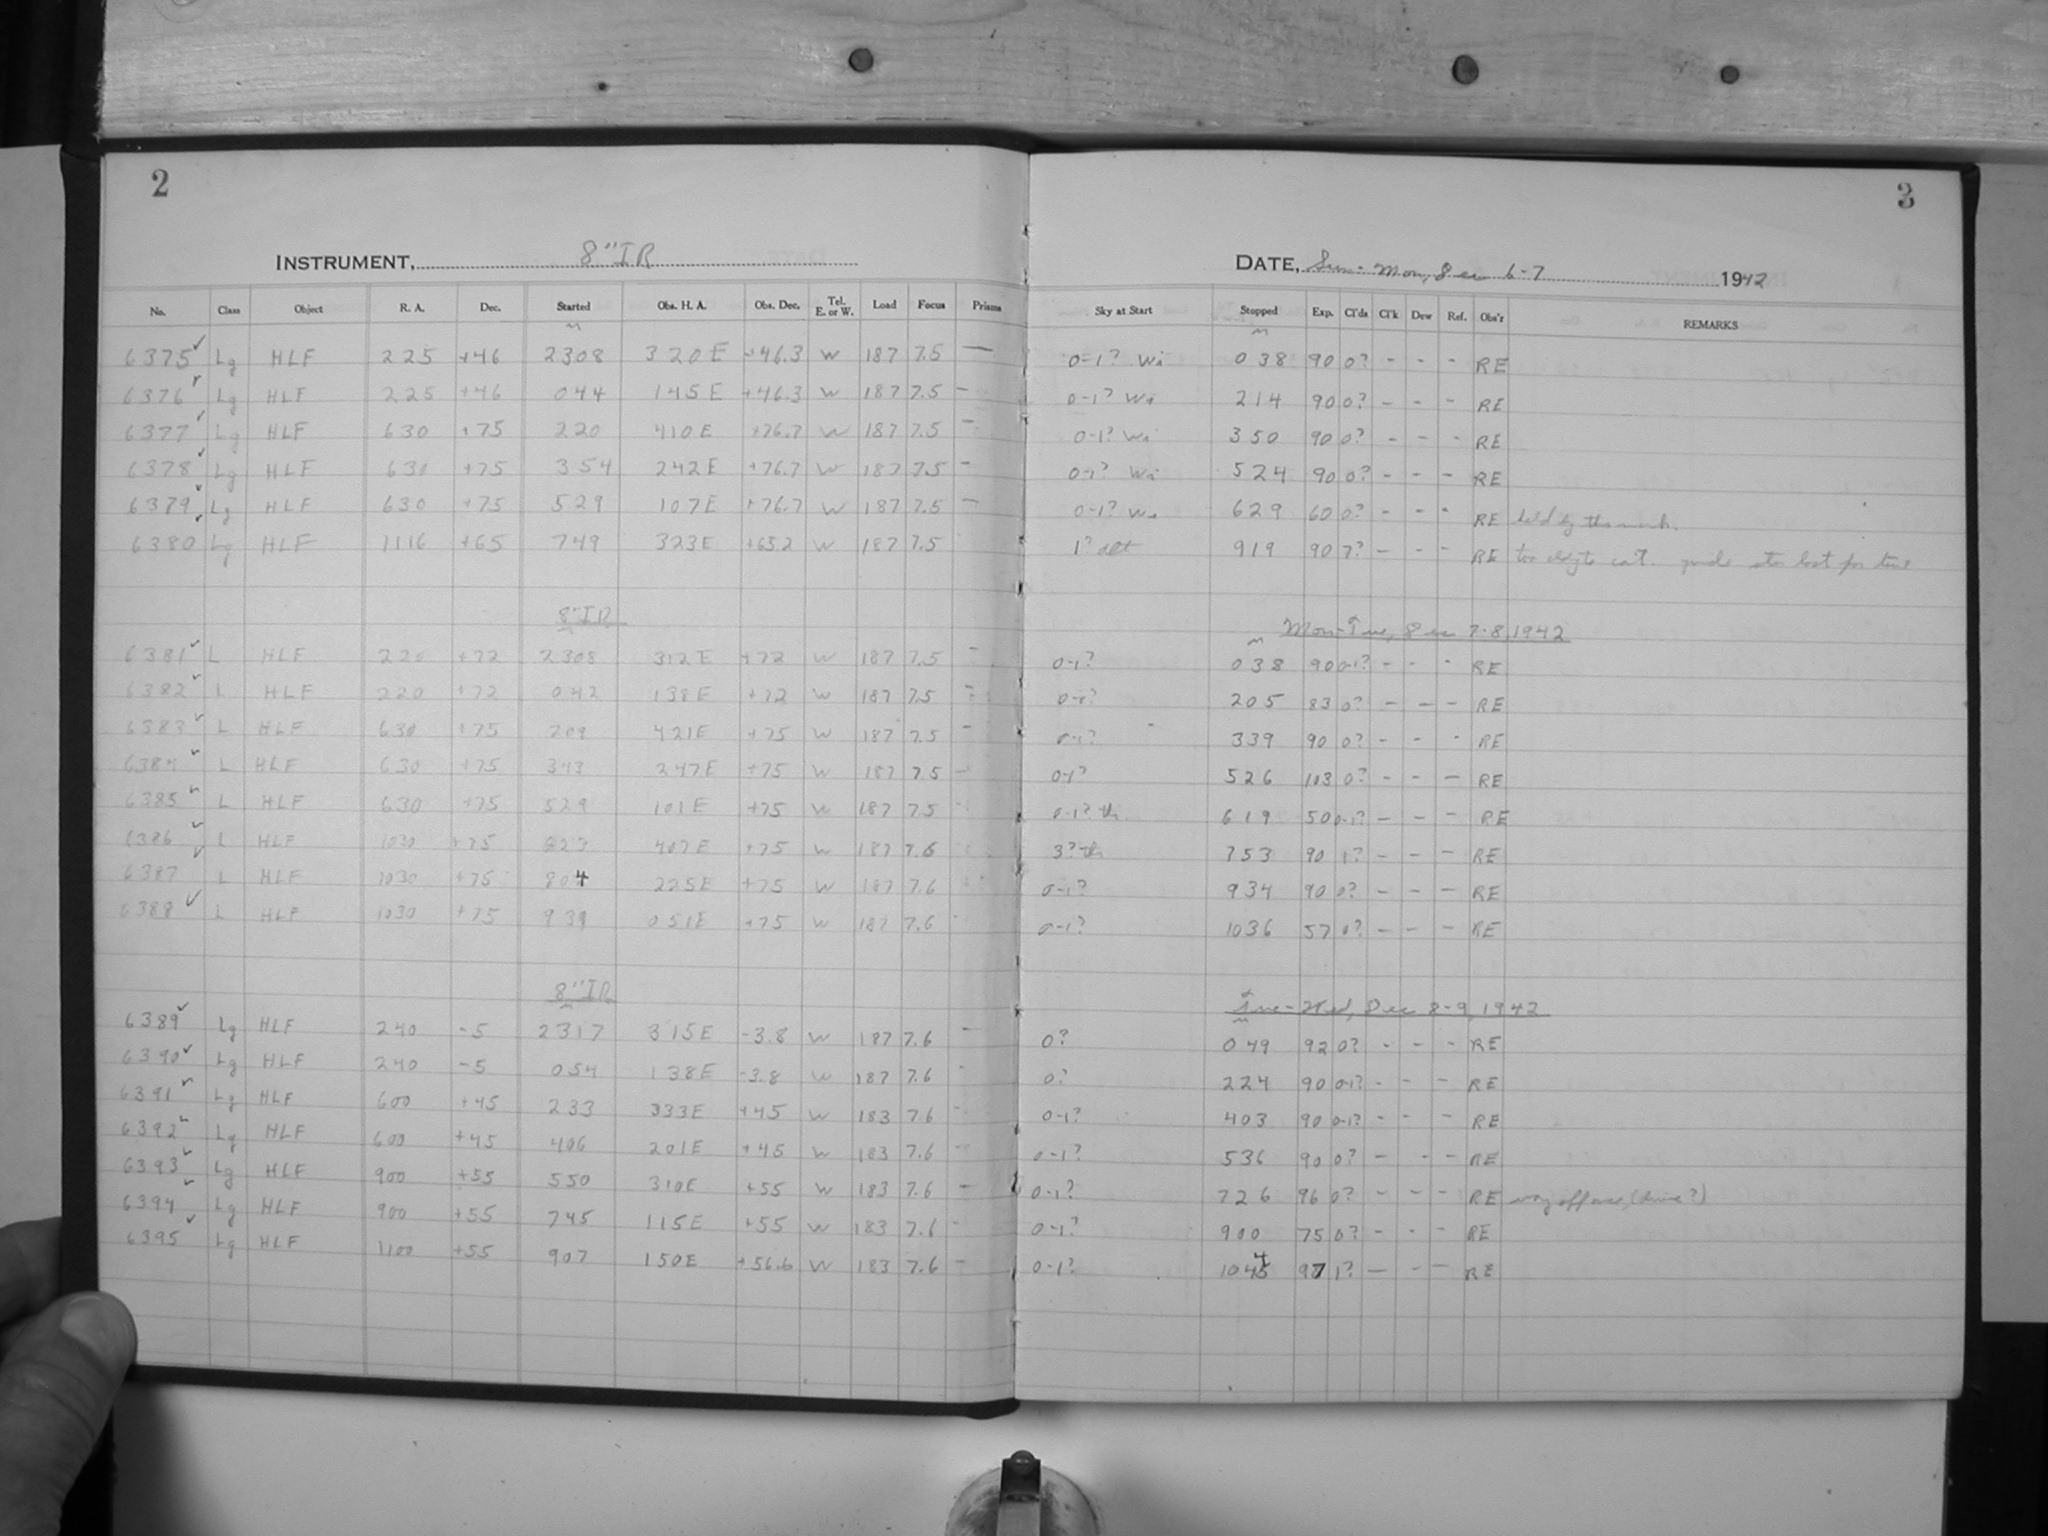 2
INSTRUMENT, 8" IR
No. Class Object R. A. Dec. Started Obs. H. A. Obs. Dec. Tel. E. or W. Load Focus Prisms
6375 ✓ Lg HLF 225 +46 2308 320E +46.3 W 187 7.5 —
6376 Lg HLF 225 +46 044 145E +46.3 W 187 7.5 —
6377 ✓ Lg HLF 630 +75 220 410E +76.7 W 187 7.5 —
6378 ✓ Lg HLF 630 +75 354 242E +76.7 W 187 7.5 —
6379 ✓ Lg HLF 630 +75 529 107E +76.7 W 187 7.5 —
6380 ✓ Lg HLF 1116 +65 749 323E +65.2 W 187 7.5
8" IR
6381 ✓ L HLF 220 +72 2308 312E +72 W 187 7.5 -
6382 ✓ L HLF 220 +72 042 138E +72 W 187 7.5 -
6383 ✓ L HLF 630 +75 209 421E +75 W 187 7.5 -
6384 ✓ L HLF 630 +75 343 247E +75 W 187 7.5 —
6385 ✓ L HLF 630 +75 529 101E +75 W 187 7.5 -
6386 ✓ L HLF 1030 +75 623 407E +75 W 187 7.6
6387 ✓ L HLF 1030 +75 804 225E +75 W 187 7.6
6388 ✓ L HLF 1030 +75 939 051E +75 W 187 7.6 -
8" IR
6389 ✓ Lg HLF 240 -5 2317 315E -3.8 W 187 7.6 -
6390 ✓ Lg HLF 240 -5 054 138E -3.8 W 187 7.6 -
6391 ✓ Lg HLF 600 +45 233 333E +45 W 183 7.6 -
6392 ✓ Lg HLF 600 +45 406 201E +45 W 183 7.6 -
6393 ✓ Lg HLF 900 +55 550 310E +55 W 183 7.6 —
6394 ✓ Lg HLF 900 +55 745 115E +55 W 183 7.6 -
6395 ✓ Lg HLF 1100 +55 907 150E +56.6 W 183 7.6 -
3
DATE, Sun-Mon, Dec 6-7 1942
Sky at Start Stopped Exp. Cl'ds Cl'k Dew Ref. Obs'r REMARKS
0-1? Wi 038 90 0? - - - RE
0-1? Wi 214 90 0? - - - RE
0-1? Wi 350 90 0? - - - RE
0-1? Wi 524 90 0? - - - RE
0-1? Wi 629 60 0? - - - RE
1? alt 919 90 7? - - - RE too cldy to cont. guide star lost for time
Mon-Tue, Dec 7-8, 1942
0-1? 038 90 0-1? - - - RE
0-1? 205 83 0? - - - RE
0-1? 339 90 0? - - - RE
0-1? 526 103 0? - - — RE
0-1? th 619 50 0-1? - - - RE
3? th 753 90 1? - - - RE
0-1? 934 90 0? - - - RE
0-1? 1036 57 0? - - - RE
Tue-Wed, Dec 8-9, 1942
0? 049 92 0? - - - RE
0? 224 90 0-1? - - - RE
0-1? 403 90 0-1? - - - RE
0-1? 536 90 0? - - - RE
0-1? 726 96 0? - - - RE way off once (drive?)
0-1? 900 75 0? - - - RE
0-1? 1044 97 1? — - — RE